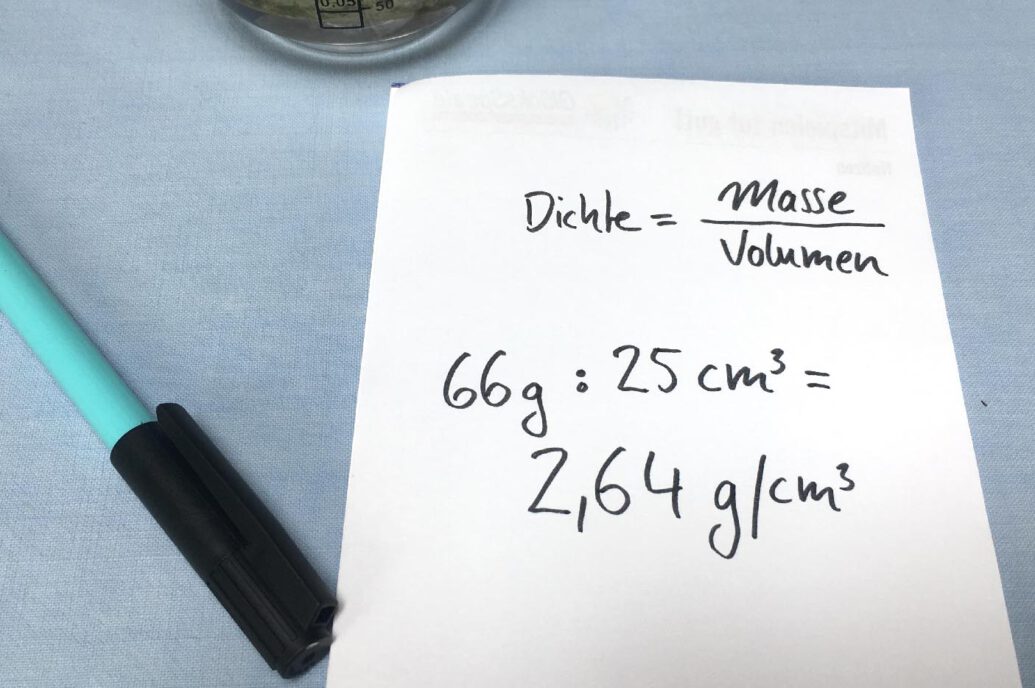 0.05 50
Dichte = Masse
Volumen
66g : 25 cm³ =
2,64 g/cm³